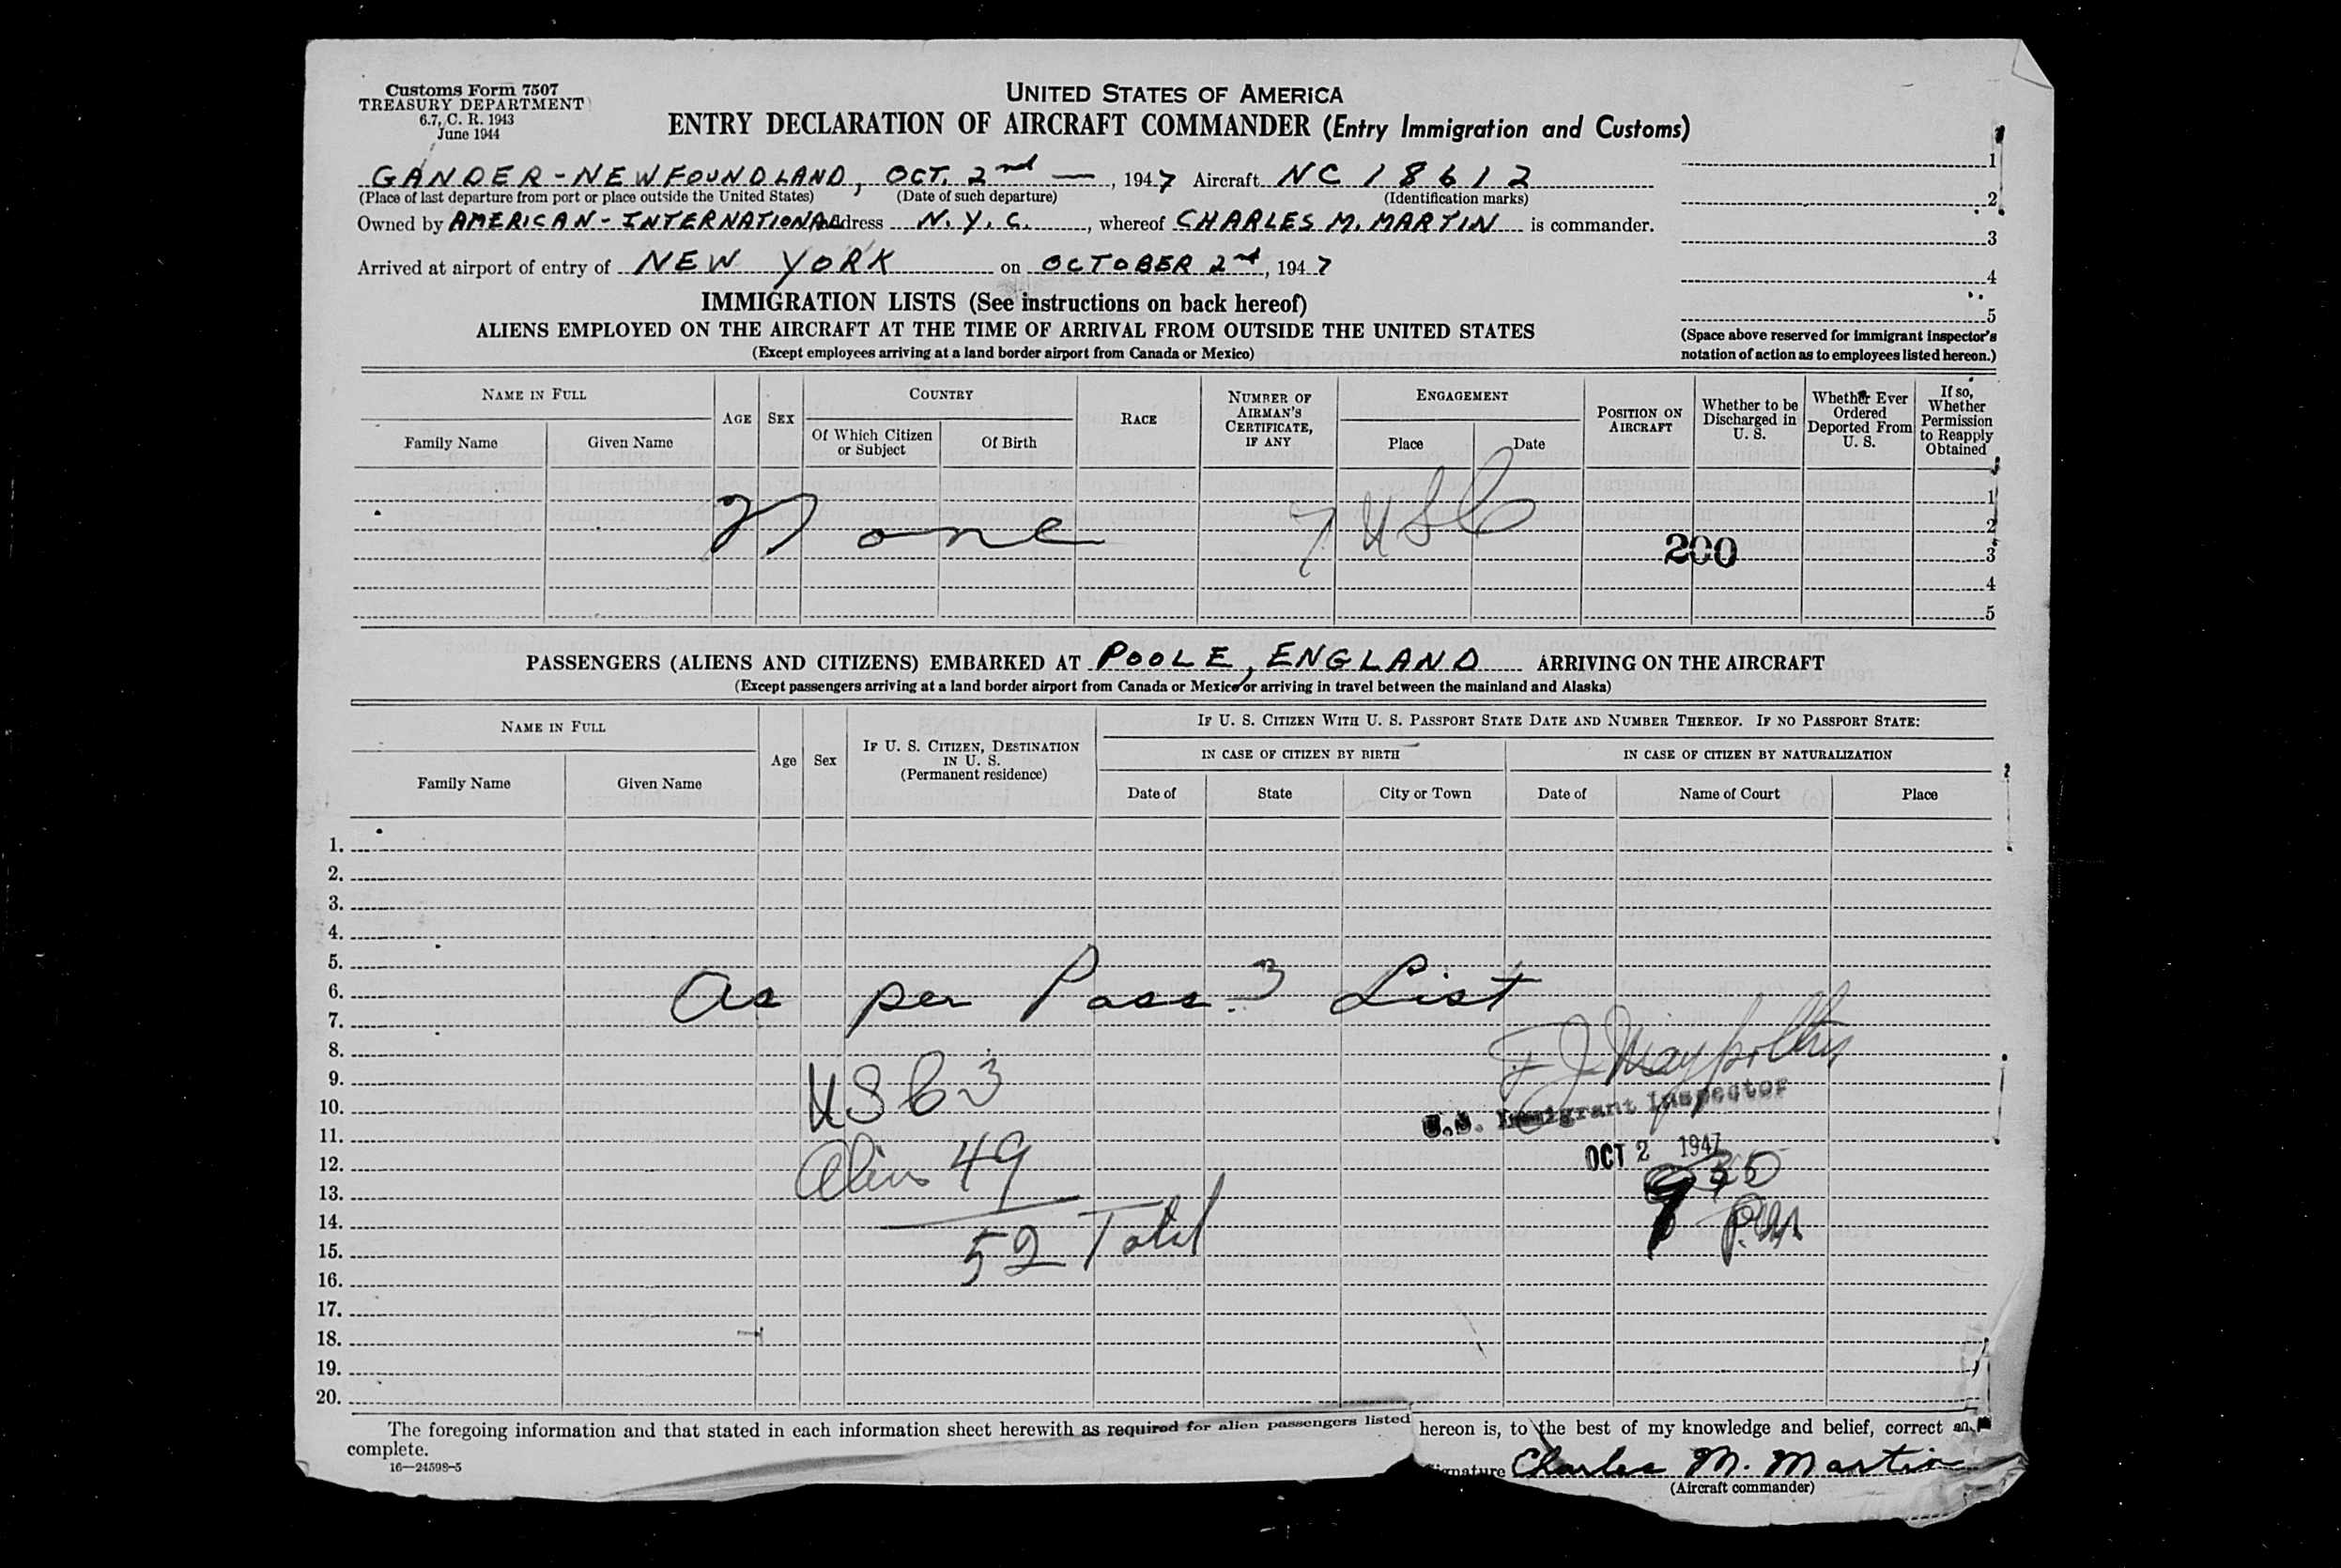 Customs Form 7507
TREASURY DEPARTMENT
6.7, C. R. 1943
June 1944
UNITED STATES OF AMERICA
ENTRY DECLARATION OF AIRCRAFT COMMANDER (Entry Immigration and Customs)
GANDER-NEWFOUNDLAND, OCT. 2nd —, 1947 Aircraft NC 18612
(Place of last departure from port or place outside the United States) (Date of such departure) (Identification marks)
Owned by AMERICAN-INTERNATIONAL Address N.Y.C., whereof CHARLES M. MARTIN is commander.
Arrived at airport of entry of NEW YORK on OCTOBER 2nd, 1947
1
2
3
4
5
(Space above reserved for immigrant inspector's
notation of action as to employees listed hereon.)
IMMIGRATION LISTS (See instructions on back hereof)
ALIENS EMPLOYED ON THE AIRCRAFT AT THE TIME OF ARRIVAL FROM OUTSIDE THE UNITED STATES
(Except employees arriving at a land border airport from Canada or Mexico)
NAME IN FULL
Family Name
Given Name
AGE
SEX
COUNTRY
Of Which Citizen
or Subject
Of Birth
RACE
NUMBER OF
AIRMAN'S
CERTIFICATE,
IF ANY
ENGAGEMENT
Place
Date
POSITION ON
AIRCRAFT
Whether to be
Discharged in
U. S.
Whether Ever
Ordered
Deported From
U. S.
If so,
Whether
Permission
to Reapply
Obtained
None
7 USC
200
1
2
3
4
5
PASSENGERS (ALIENS AND CITIZENS) EMBARKED AT POOLE, ENGLAND ARRIVING ON THE AIRCRAFT
(Except passengers arriving at a land border airport from Canada or Mexico or arriving in travel between the mainland and Alaska)
NAME IN FULL
Family Name
Given Name
Age
Sex
IF U. S. CITIZEN, DESTINATION
IN U. S.
(Permanent residence)
IF U. S. CITIZEN WITH U. S. PASSPORT STATE DATE AND NUMBER THEREOF. IF NO PASSPORT STATE:
IN CASE OF CITIZEN BY BIRTH
IN CASE OF CITIZEN BY NATURALIZATION
Date of
State
City or Town
Date of
Name of Court
Place
1.
2.
3.
4.
5.
6.
7.
8.
9.
10.
11.
12.
13.
14.
15.
16.
17.
18.
19.
20.
As per Pass. List
USC 3
Alien 49
52 Total
U.S. Immigrant Inspector
OCT 2 1947
P.M.
The foregoing information and that stated in each information sheet herewith as required for alien passengers listed hereon is, to the best of my knowledge and belief, correct an
complete.
16—24598-5
ignature Charles M. Martin
(Aircraft commander)